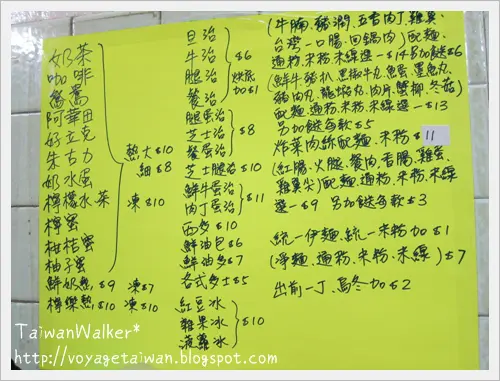 奶茶
咖啡
鴛鴦
阿華田
好立克
朱古力
奶水蛋
檸檬水.茶
檸蜜
柑桔蜜
柚子蜜
熱大$10
細$8
凍$10
鮮奶熱$9 凍$7
檸樂熱$10 凍$10
旦治
牛治
腿治
餐治
$6
烘底
加$1
腿蛋治
芝士治
餐蛋治
$8
芝士腿治$10
鮮牛蛋治
肉丁蛋治
$11
西多$10
鮮油包$6
鮮油多$7
各式多士$5
紅豆冰
雜果冰
菠蘿冰
$10
(牛腩、豬潤、五香肉丁、雞翼、
台灣一口腸、回鍋肉)配麵、
通粉、米粉、米線選一$14另加餸$6
(鮮牛、豬扒、黑椒牛丸、魚蛋、墨魚丸、
豬肉丸、龍蝦丸、肉片、蟹柳、冬菇)
配麵、通粉、米粉、米線選一$13
另加餸各款$5
炸菜肉絲配麵、米粉$11
(紅腸、火腿、餐肉、香腸、雞蛋、
雞翼尖)配麵、通粉、米粉、米線
選一$9 另加餸各款$3
統一伊麵、統一米粉加$1
(淨麵、通粉、米粉、米線)$7
出前一丁、烏冬加$2
TaiwanWalker*
http://voyagetaiwan.blogspot.com